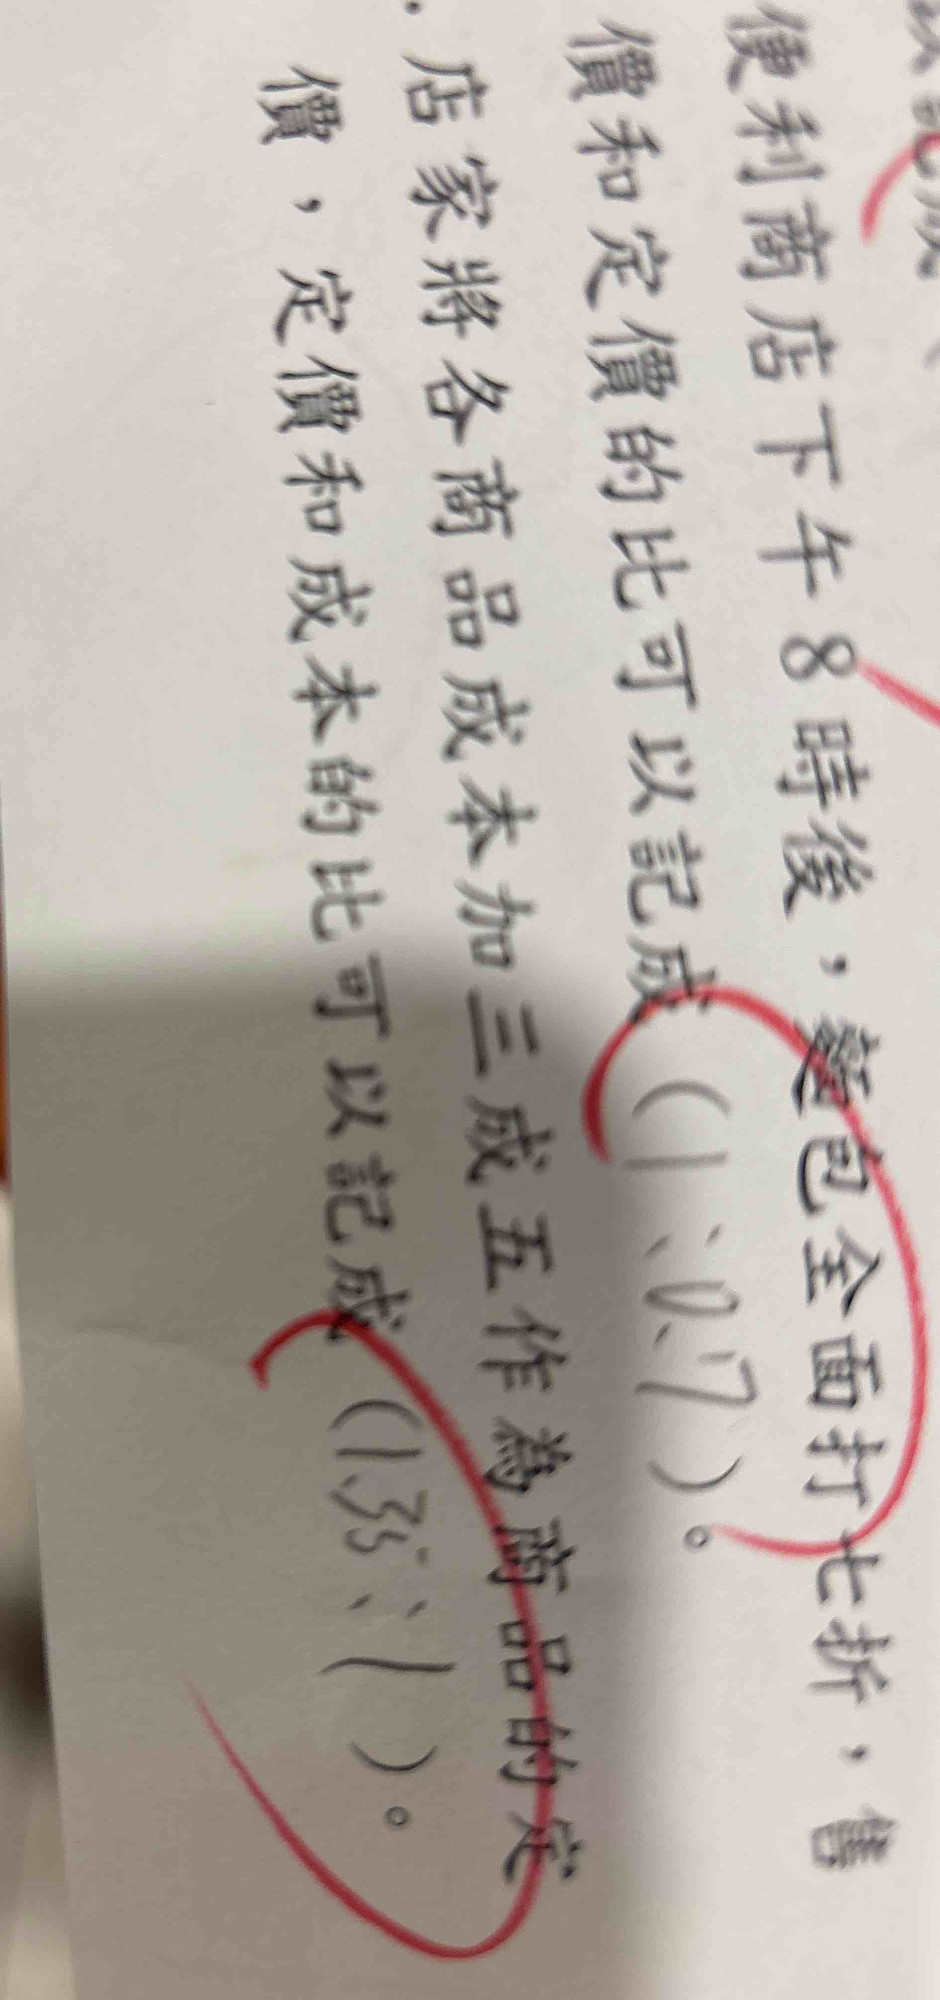 便利商店下午8時後，麵包全面打七折，售
價和定價的比可以記成（1:0.7）。
．店家將各商品成本加三成五作為商品的定
價，定價和成本的比可以記成（1.35:1）。